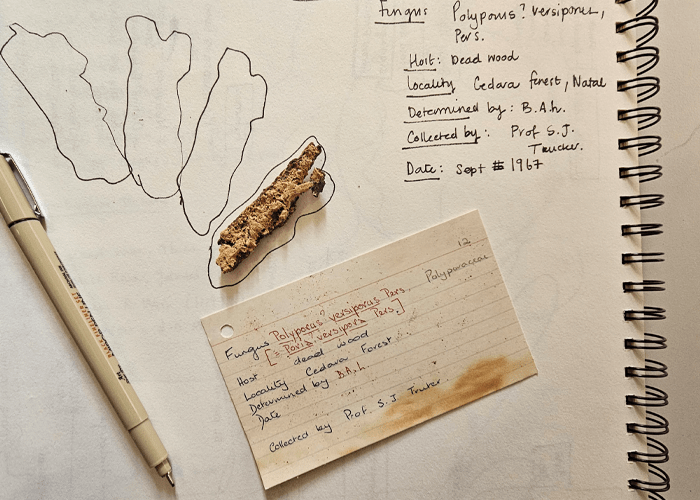 Fungus Polyporus? versiporus,
Pers.
Host: Dead wood
Locality Cedara forest, Natal
Determined by: B.A.h.
Collected by: Prof S.J.
Trucker.
Date: Sept 1967
12
Polyporaceae
Fungus Polyporus? versiporus Pers.
[= Poria versipora Pers.]
Host dead wood
Locality Cedara Forest
Determined by B.A.h.
Date
Collected by Prof S.J. Truter